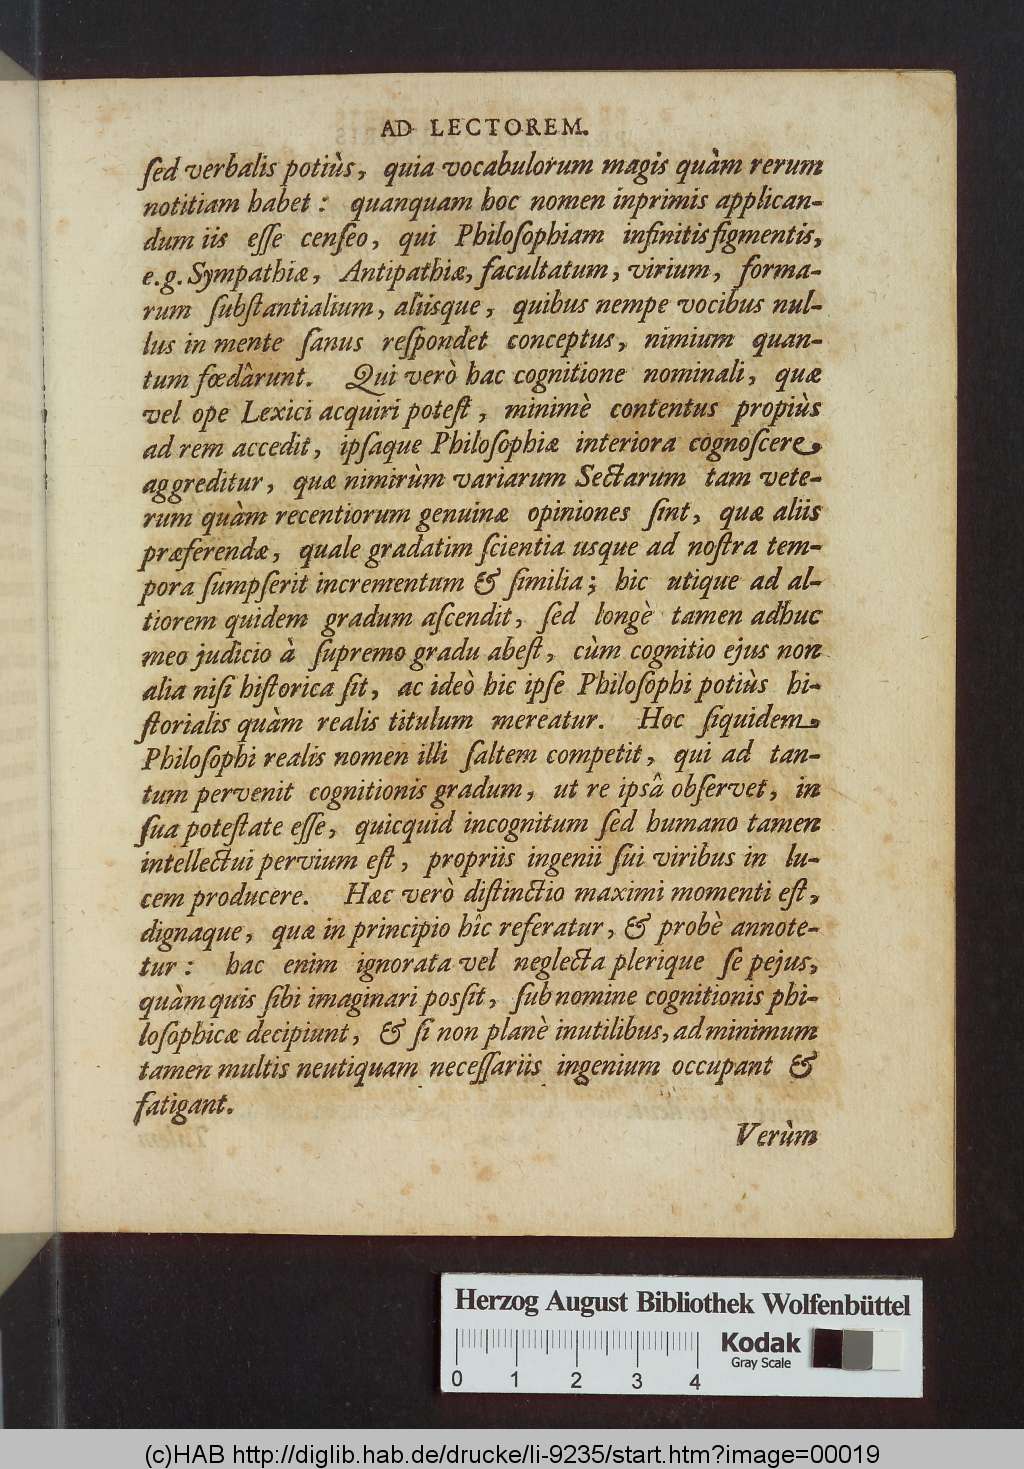 AD LECTOREM.
ſed verbalis potiùs, quia vocabulorum magis quàm rerum
notitiam habet : quanquam hoc nomen inprimis applican-
dum iis eſſe cenſeo, qui Philoſophiam infinitis figmentis,
e.g. Sympathiæ, Antipathiæ, facultatum, virium, forma-
rum ſubſtantialium, aliisque, quibus nempe vocibus nul-
lus in mente ſanus reſpondet conceptus, nimium quan-
tum fœdârunt. Qui verò hac cognitione nominali, quæ
vel ope Lexici acquiri poteſt, minimè contentus propiùs
ad rem accedit, ipſaque Philoſophiæ interiora cognoſcere
aggreditur, quæ nimirùm variarum Sectarum tam vete-
rum quàm recentiorum genuinæ opiniones ſint, quæ aliis
præferendæ, quale gradatim ſcientia usque ad noſtra tem-
pora ſumpſerit incrementum & ſimilia; hic utique ad al-
tiorem quidem gradum aſcendit, ſed longè tamen adhuc
meo judicio à ſupremo gradu abeſt, cùm cognitio ejus non
alia niſi hiſtorica ſit, ac ideò hic ipſe Philoſophi potiùs hi-
ſtorialis quàm realis titulum mereatur. Hoc ſiquidem
Philoſophi realis nomen illi ſaltem competit, qui ad tan-
tum pervenit cognitionis gradum, ut re ipsâ obſervet, in
ſua poteſtate eſſe, quicquid incognitum ſed humano tamen
intellectui pervium eſt, propriis ingenii ſui viribus in lu-
cem producere. Hæc verò diſtinctio maximi momenti eſt,
dignaque, quæ in principio hîc referatur, & probè annote-
tur : hac enim ignorata vel neglecta plerique ſe pejus,
quàm quis ſibi imaginari poſſit, ſub nomine cognitionis phi-
loſophicæ decipiunt, & ſi non planè inutilibus, ad minimum
tamen multis neutiquam neceſſariis ingenium occupant &
fatigant.
Verùm
Herzog August Bibliothek Wolfenbüttel
Kodak
Gray Scale
0 1 2 3 4
(c)HAB http://diglib.hab.de/drucke/li-9235/start.htm?image=00019